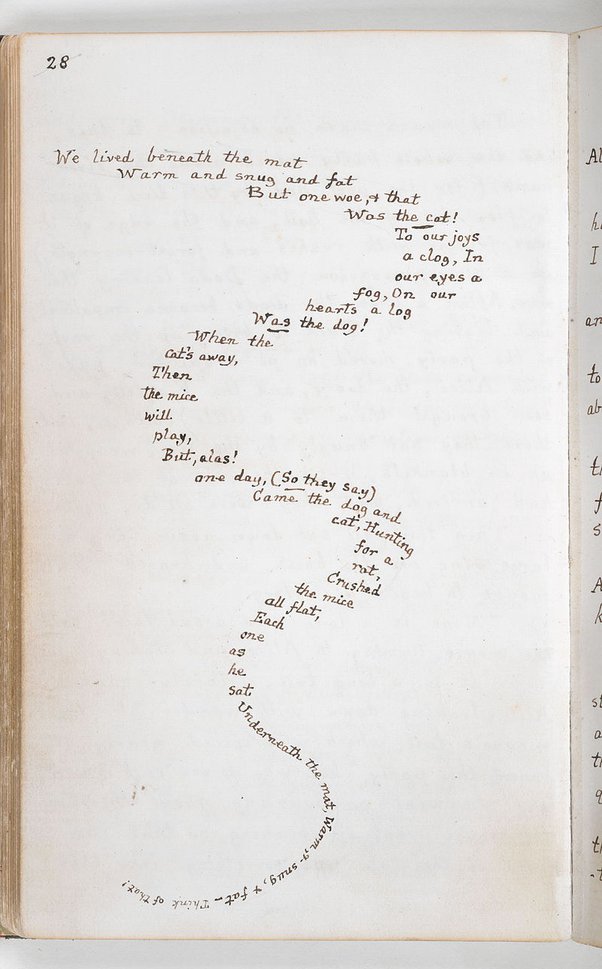 28
We lived beneath the mat
Warm and snug and fat
But one woe, & that
Was the cat!
To our joys
a clog, In
our eyes a
fog, On our
hearts a log
Was the dog!
When the
cat's away,
Then
the mice
will
play,
But, alas!
one day, (So they say)
Came the dog and
cat, Hunting
for a
rat,
Crushed
the mice
all flat,
Each
one
as
he
sat
Underneath the mat, Warm, & snug, & fat — Think of that!